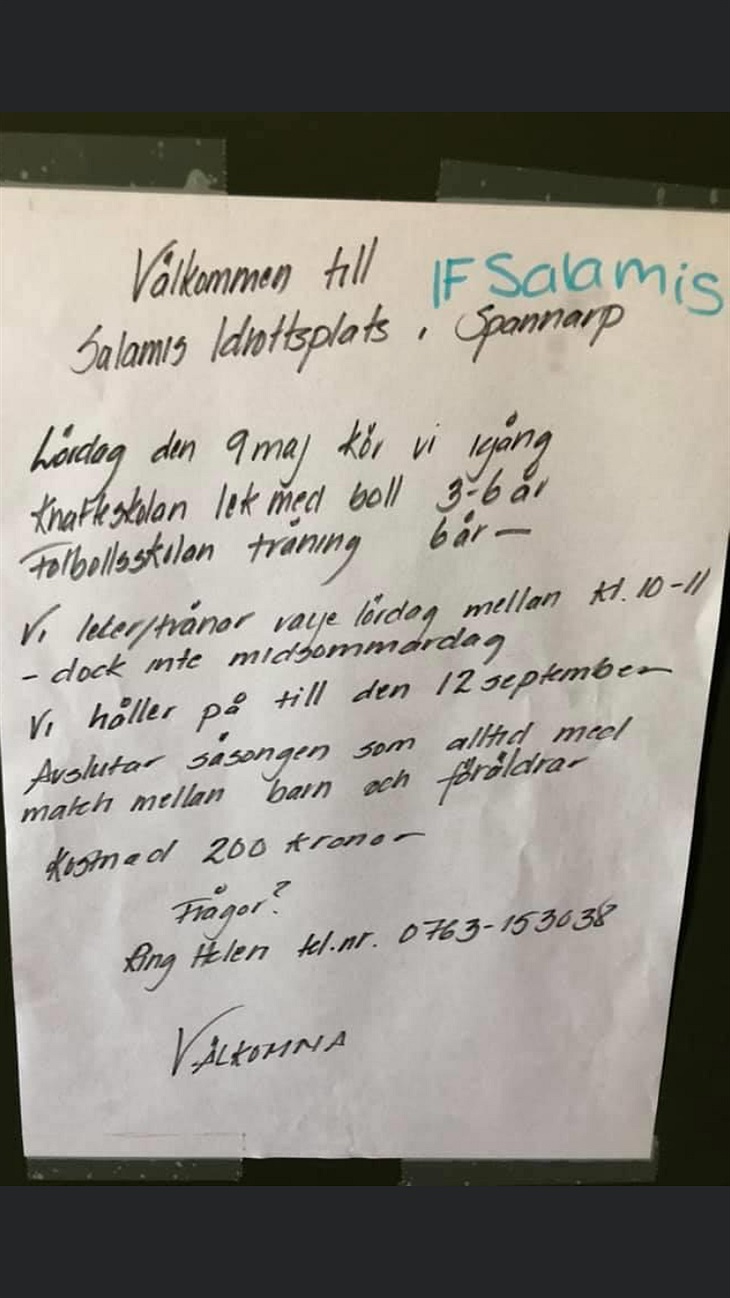 Välkommen till IF Salamis
Salamis Idrottsplats, Spannarp
Lördag den 9 maj kör vi igång
Knatteskolan lek med boll 3-6 år
Fotbollsskolan träning 6 år -
Vi leker/tränar varje lördag mellan kl. 10-11
- dock inte midsommardag
Vi håller på till den 12 september
Avslutar säsongen som alltid med
match mellan barn och föräldrar
Kostnad 200 kronor
Frågor?
Ring Helen tel.nr. 0763-153038
VÄLKOMNA